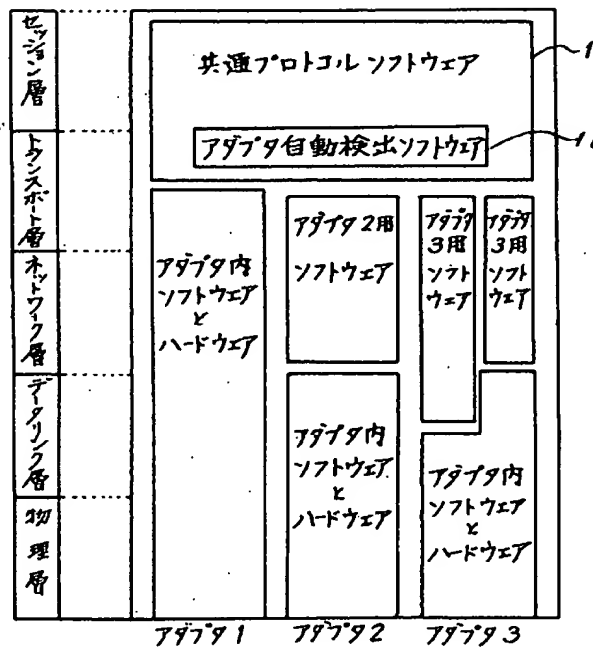 セッション層
トランスポート層
ネットワーク層
データリンク層
物理層
共通プロトコルソフトウェア
アダプタ自動検出ソフトウェア
1
アダプタ内
ソフトウェア
と
ハードウェア
アダプタ2用
ソフトウェア
アダプタ
3用
ソフト
ウェア
アダプタ
3用
ソフト
ウェア
アダプタ内
ソフトウェア
と
ハードウェア
アダプタ内
ソフトウェア
と
ハードウェア
アダプタ1
アダプタ2
アダプタ3